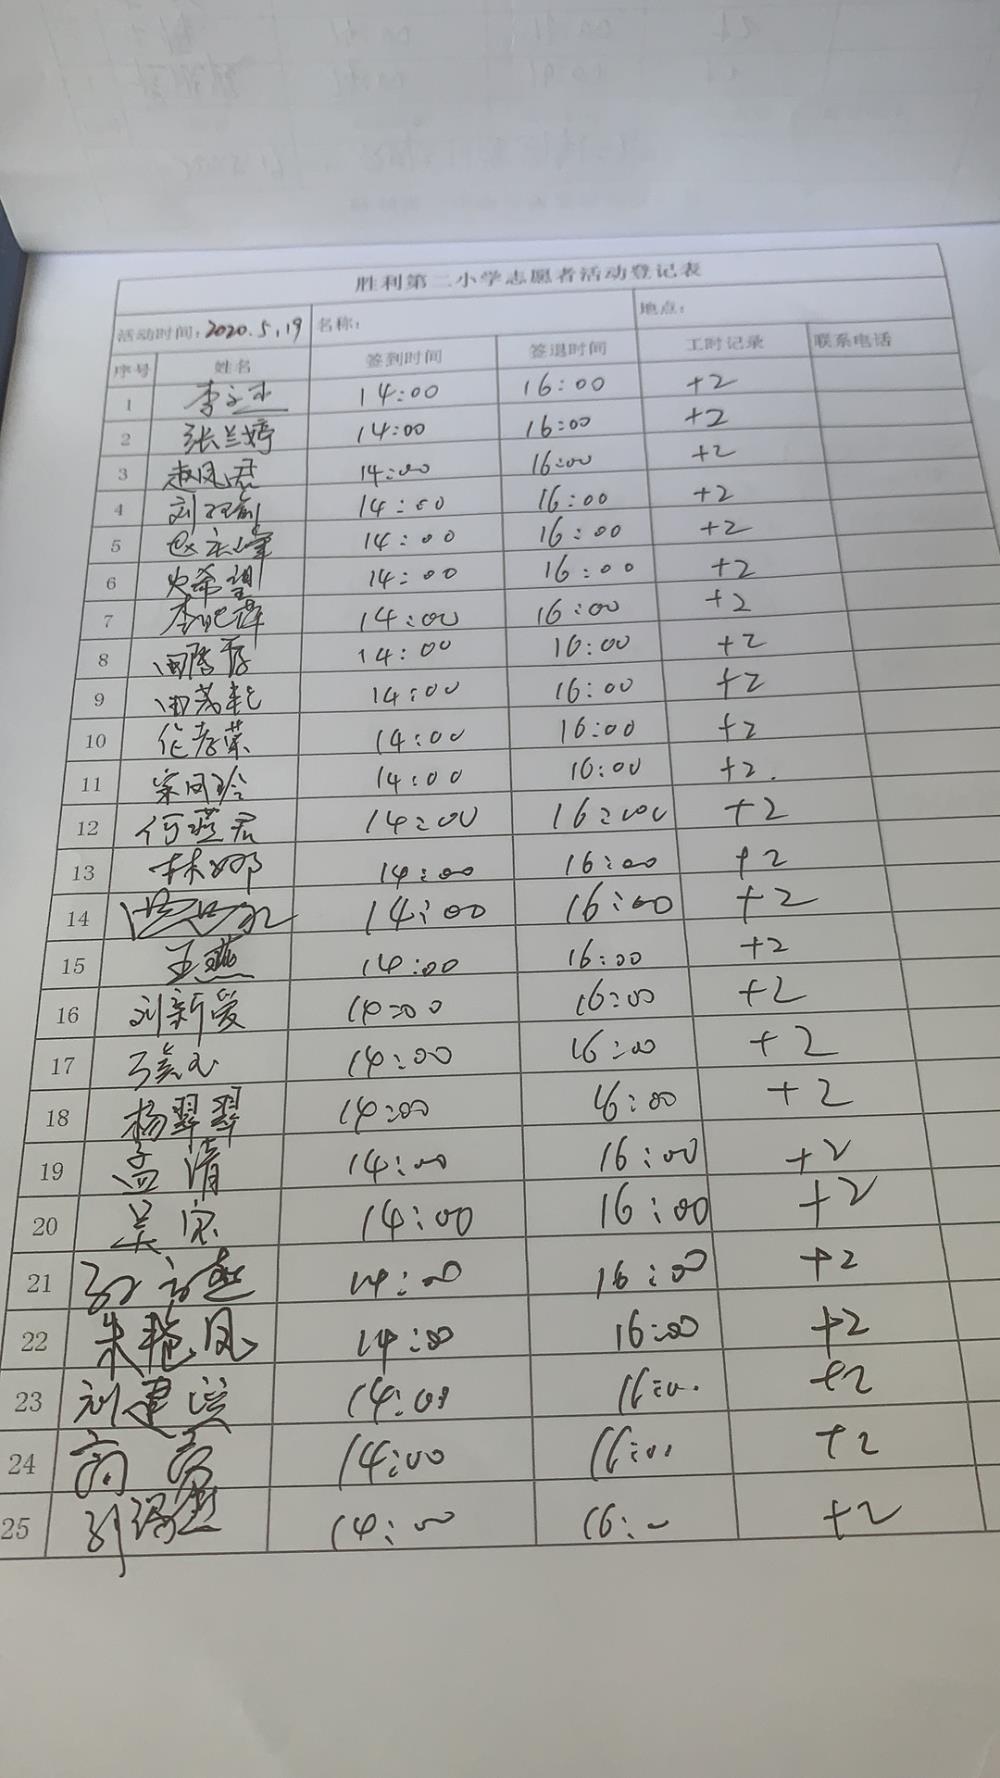 胜利第二小学志愿者活动登记表
活动时间：2020.5.19 名称： 地点：
序号 姓名 签到时间 签退时间 工时记录 联系电话
1 14:00 16:00 +2
2 张兰婷 14:00 16:00 +2
3 赵凤君 14:00 16:00 +2
4 14:00 16:00 +2
5 14:00 16:00 +2
6 史希望 14:00 16:00 +2
7 14:00 16:00 +2
8 14:00 16:00 +2
9 14:00 16:00 +2
10 14:00 16:00 +2
11 14:00 16:00 +2.
12 何燕君 14:00 16:00 +2
13 林娜 14:00 16:00 +2
14 14:00 16:00 +2
15 王燕 14:00 16:00 +2
16 刘新爱 14:00 16:00 +2
17 14:00 16:00 +2
18 杨翠翠 14:00 16:00 +2
19 孟清 14:00 16:00 +2
20 14:00 16:00 +2
21 14:00 16:00 +2
22 朱艳凤 14:00 16:00 +2
23 14:00 16:00 +2
24 14:00 16:00 +2
25 14:00 16:00 +2